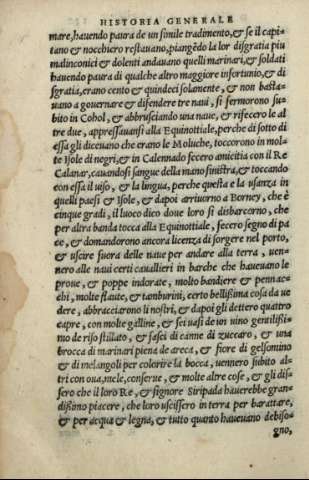 HISTORIA GENERALE
mare, hauendo paura de un simile tradimento, & se il capi-
tano & nocchiero restauano, piangēdo la lor disgratia piu
malinconici & dolenti andauano quelli marinari, & soldati
hauendo paura di qualche altro maggiore infortunio, & di
sgratia, erano cento & quindeci solamente, & non basta-
uano a gouernare & difendere tre naui, si fermorono su-
bito in Cohol, & abbrusciando una naue, & rifecero le al
tre due, appressauansi alla Equinottiale, perche di sotto di
essa gli diceuano che erano le Moluche, toccorono in mol-
te Isole di negri, & in Calennado fecero amicitia con il Re
Calanar, cauandosi sangue della mano sinistra, & toccando
con essa il uiso, & la lingua, perche questa e la usanza in
quelli paesi & Isole, & dapoi arriuorno a Borney, che è
cinque gradi, il luoco dico doue loro si disbarcorno, che
per altra banda tocca alla Equinottiale, fecero segno di pa
ce, & domandorono ancora licenza di sorgere nel porto,
& uscire fuora delle naue per andare alla terra, uen-
nero alle naui certi cauallieri in barche che haueuano le
proue, & poppe indorate, molto bandiere & pennac-
chi, molte flaute, & tamburini, certo bellissima cosa da ue
dere, abbracciarono li nostri, & dapoi gli dettero quattro
capre, con molte galline, & sei uasi de un uino gentilissi-
mo de riso stillato, & fasci di canne di zuccaro, & una
brocca di marinari piena de areca, & fiore di gelsomino
& di melangoli per colorire la bocca, uennero subito al-
tri con oua, mele, conserue, & molte altre cose, & gli dis-
sero che il loro Re, & signore Siripada hauerebbe gran-
dissimo piacere, che loro uscissero in terra per barattare,
& per acqua & legna, & tutto quanto haueuano debiso-
gno,